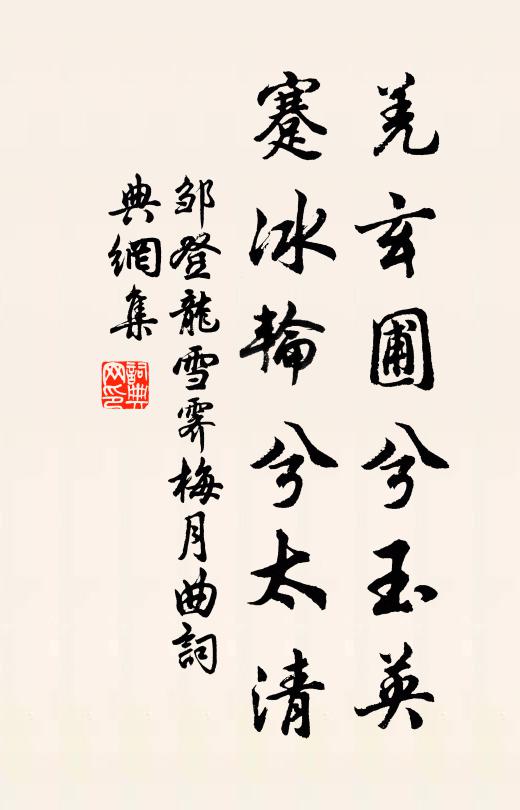 羌玄圃兮玉英
蹇冰輪兮太清
邹登龍雪霁梅月曲詞
典網集
詞典
网印